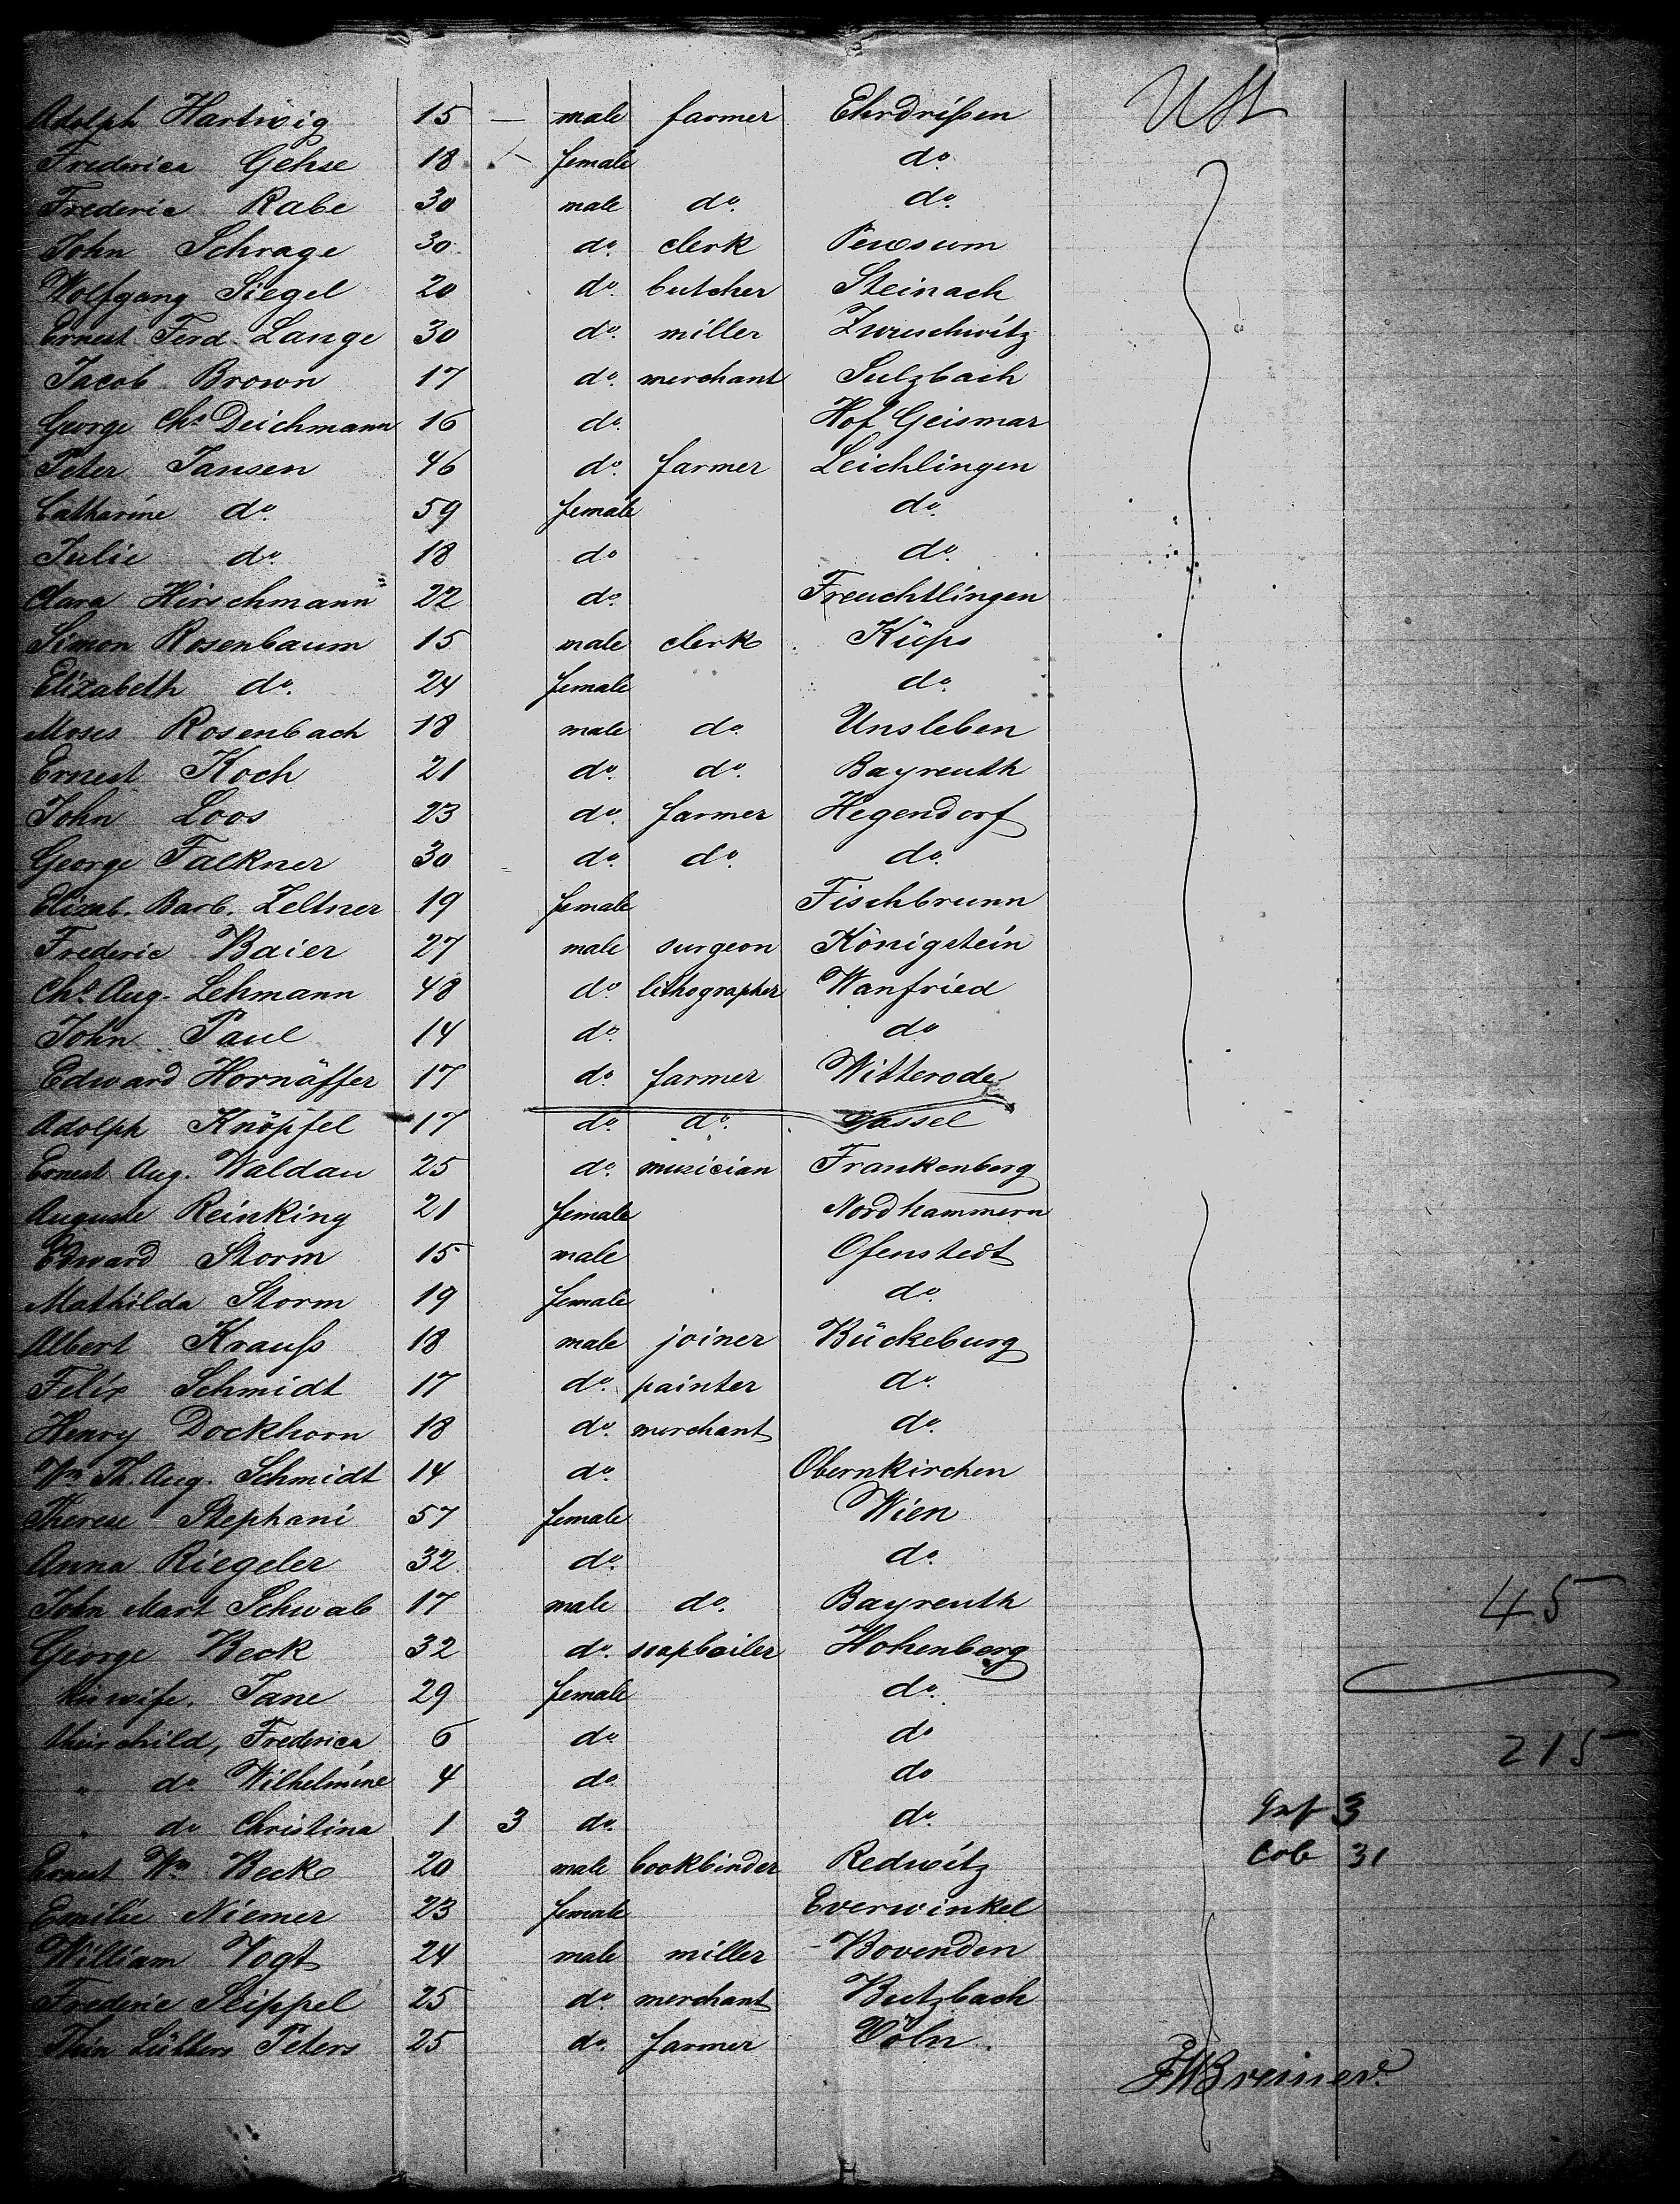 Adolph Hartwig 15 — male farmer Ehrdrißen USt
Frederica Gehse 18 — female do.
Frederic Rabe 30 male do. do.
John Schrage 30 do. clerk Pewsum
Wolfgang Siegel 20 do. butcher Steinach
Ernest Ferd. Lange 30 do. miller Zwuschwitz
Jacob Brown 17 do. merchant Sulzbach
George Chs. Deichmann 16 do. Hof Geismar
Peter Jansen 46 do. farmer Leichlingen
Catharine do. 59 female do.
Julie do. 18 do do.
Clara Hirschmann 22 do. Freuchtlingen
Simon Rosenbaum 15 male clerk Küps
Elizabeth do. 24 female do.
Moses Rosenbach 18 male do. Unsleben
Ernest Koch 21 do. do. Bayreuth
John Loos 23 do. farmer Hegendorf
George Falkner 30 do. do. do.
Elizab. Barb. Zeltner 19 female Fischbrunn
Frederic Baier 27 male surgeon Königstein
Chs. Aug. Lehmann 48 do. lithographer Wanfried
John Paul 14 do. do
Edward Hornäffer 17 do. farmer Witterode
Adolph Knöpfel 17 do. do. Cassel
Ernest Aug. Waldau 25 do. musician Frankenberg
Auguste Reinking 21 female Nordhammern
Edward Storm 15 male Ofenstedt
Mathilda Storm 19 female do.
Albert Krauß 18 male joiner Bückeburg
Felix Schmidt 17 do. painter do.
Henry Dockhorn 18 do. merchant do.
Wm. Th. Aug. Schmidt 14 do. Obernkirchen
Therese Stephani 57 female Wien
Anna Riegeler 32 do. do.
John Mart Schwab 17 male do. Bayreuth 45
George Beck 32 do. soapboiler Hohenberg
his wife, Jane 29 female do.
their child, Frederica 6 do. do 215
" do. Wilhelmine 4 do. do
" do Christina 1 3 do. do. Inf 3
Ernest Wm. Beck 20 male bookbinder Redwitz Cob 31
Emilie Niemer 23 female Everwinkel
William Vogt 24 male miller Bovenden
Frederic Seippel 25 do. merchant Butzbach
Lütters Peters 25 do. farmer Cöln.